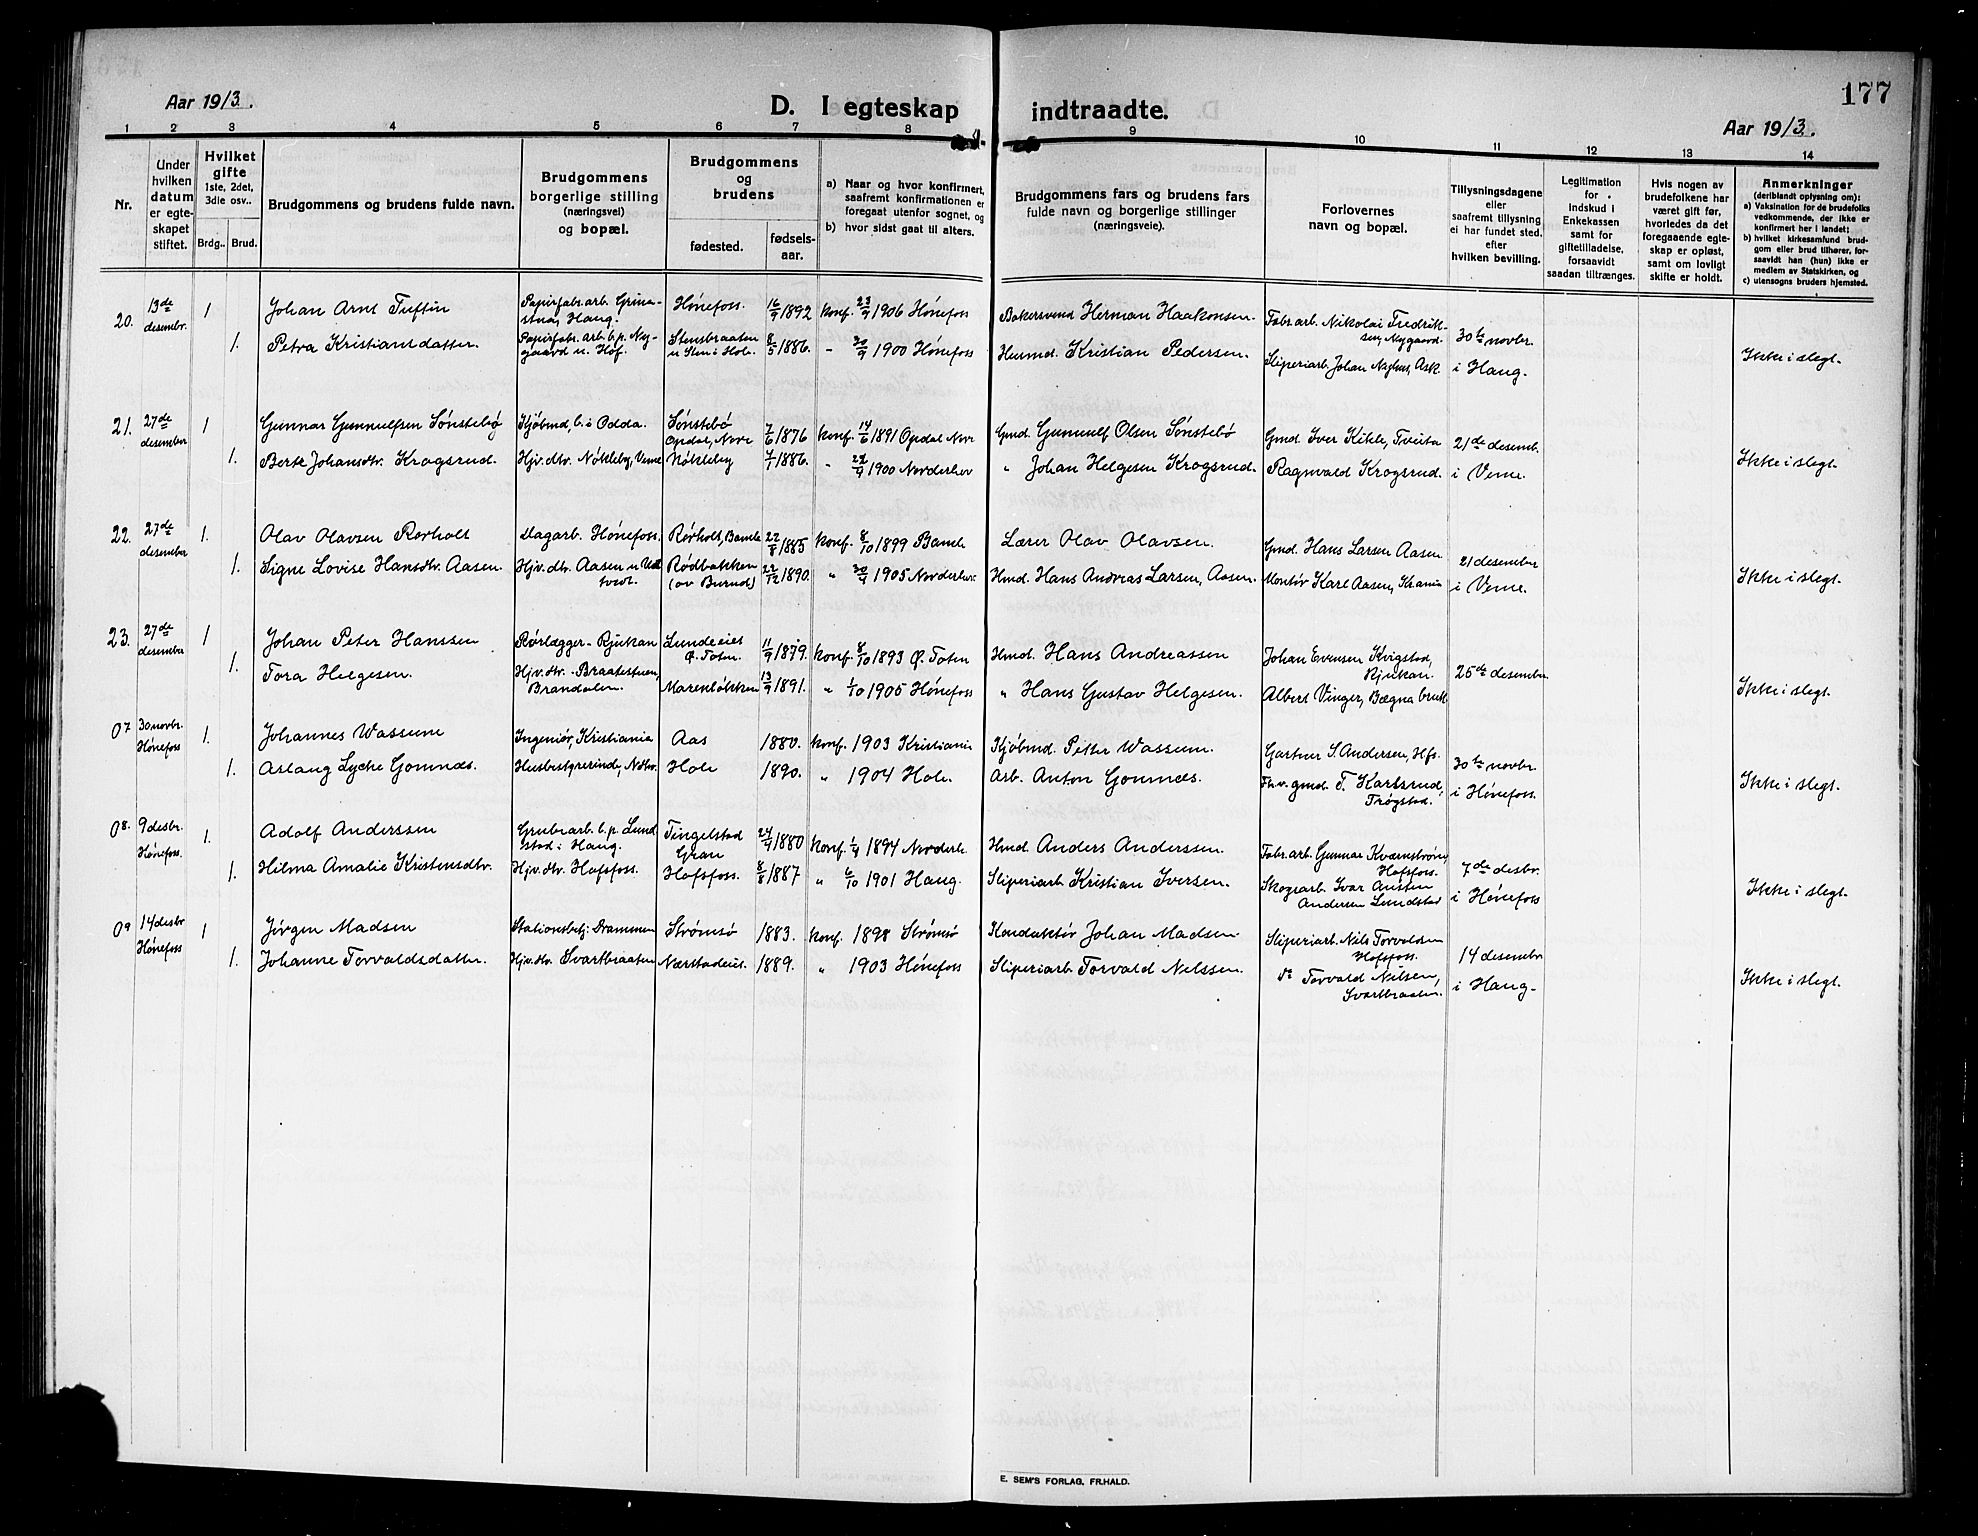 177
Aar 1913.
D. I egteskap indtraadte.
Aar 1913.
1 2 3 4 5 6 7 8 9 10 11 12 13 14
Nr.
Under hvilken datum er egteskapet stiftet.
Hvilket gifte 1ste, 2det, 3die osv..
Brdg. Brud.
Brudgommens og brudens fulde navn.
Brudgommens borgerlige stilling (næringsvei) og bopæl.
Brudgommens og brudens
fødested.
fødselsaar.
a) Naar og hvor konfirmert, saafremt konfirmationen er foregaat utenfor sognet, og
b) hvor sidst gaat til alters.
Brudgommens fars og brudens fars fulde navn og borgerlige stillinger (næringsveie).
Forlovernes navn og bopæl.
Tillysningsdagene eller saafremt tillysning ei har fundet sted, efter hvilken bevilling.
Legitimation for Indskud i Enkekassen samt for giftetilladelse, forsaavidt saadan tiltrænges.
Hvis nogen av brudefolkene har været gift før, hvorledes da det foregaaende egteskap er opløst, samt om lovligt skifte er holdt.
Anmerkninger (deriblandt oplysning om):
a) Vaksination for de brudefolks vedkommende, der ikke er konfirmert her i landet;
b) hvilket kirkesamfund brudgom eller brud tilhører, forsaavidt han (hun) ikke er medlem av Statskirken, og
c) utensogns bruders hjemsted.
20. 13de desembr. 1 Johan Arnt Tuftin Papirfabr.arb. Hønefoss. 16/9 1892 konf. 23/9 1906 Hønefoss Bakersvend Herman Haakonsen. Fabr.arb. Nikolai Fredriksen, Nygaard. 30te novbr.
1. Petra Kristiansdatter. Papirfabr. arb. b.p. Nygaard u. Hof. Stensbraaten u Sten i Hole. 8/5 1886. " 30/9 1900 Hønefoss Husmd. Kristian Pedersen. Sliperiarb. Johan Nyhus, Ask. i Haug. Ikke i slegt.
21. 27de desember 1 Gunnar Gunnulfsen Sønstebø Kjøbmd, b. i Odda. Sønstebø Opdal, Nore 7/6 1876 konf. 14/6 1891 Opdal Nore Gmd. Gunnulf Olsen Sønstebø Gmd. Iver Kikle, Tveita 21de desemb.
1. Berte Johansdtr. Krogsrud. Hjv. dtr. Nøkleby, Veme Nøkleby 7/1 1886. " 1900 Norderhov " Johan Helgesen Krogsrud. Ragnvald Krogsrud. i Veme. Ikke i slegt.
22. 27de desember 1. Olav Olavsen Rørholt Dagarb. Hønefoss. Rørholt, Bamle 22/8 1885 konf. 8/10 1899 Bamle Lærer Olav Olavsen. Gmd. Hans Larsen Aasen 21 desember
1. Signe Lovise Hansdtr. Aasen. Hjv. dtr. Aasen Rødbakken (av Burud) 22/12 1890. " 1905 Norderhov Hmd. Hans Andreas Larsen, Aasen. Montør Karl Aasen, Krania i Veme. Ikke i slegt.
23. 27de desember 1 Johan Peter Hanssen Rørlægger - Rjukan Lundeeiet Ø. Toten. 11/9 1879. konf. 8/10 1893 Ø. Toten Hmd. Hans Andreassen Johan Evensen Kvigstad, Rjukan. 25de desember
1. Tora Helgesen. Hjv. dtr. - Braatestuen, Brandalen. Marenløkken 13/9 1891. " 1/10 1905 Hønefoss " Hans Gustav Helgesen. Albert Vinger, Bægna bruk Ikke i slegt.
07 30 novbr. Hønefoss 1. Johannes Wassum Ingeniør, Kristiania Aas 1880. konf. 1903 Kristiania Kjøbmd. Petter Wassum. Gartner S. Andersen, Hfs. 30te novbr.
1. Aslaug Lyche Gomnæs. Husbestyrerinde, Ndhv. Hole 1890. " 1904 Hole. Arb. Anton Gomnæs. Fh.v. gmd. T. Karlsrud, Trøgstad. i Hønefoss. Ikke i slegt.
08. 9 desbr. Hønefoss. 1. Adolf Anderssen Grubearb. b.p. Lundstad i Haug. Tingelstad Gran 24/4 1880 konf. 1894 Norderh. Hmd. Anders Anderssen. Fabr.arb. Gunnar Kværnstrøm, Hofsfoss. 7de desbr.
1. Hilma Amalie Kristensdtr. Hjv. dtr. Hofsfoss. Hofsfoss. 8/8 1887 " 6/10 1901 Haug. Sliperiarb. Kristian Iversen. Skogarb. Ivar Austen Andersen Lundstad i Hønefoss Ikke i slegt.
09 14 desbr Hønefoss 1 Jørgen Madsen Stationsbetj. Drammen Strømsø 1883. konf. 1898 Strømsø Konduktør Johan Madsen. Sliperiarb. Nils Torvaldsen Hofsfoss. 14 desembr
1. Johanne Torvaldsdatter. Hjv. dtr. Svartbraaten Nærstadeiet. 1889. " 1903 Hønefoss Sliperiarb. Torvald Nilssen. do Torvald Nilsen, Svartbraaten. i Haug. Ikke i slegt.
E. SEM'S FORLAG, FR.HALD.